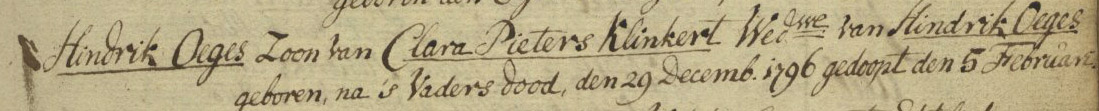 Hindrik Oeges Zoon van Clara Pieters Klinkert Wed.we van Hindrik Oeges
geboren, na 's Vaders dood, den 29 Decemb. 1796 gedoopt den 5 Februari.